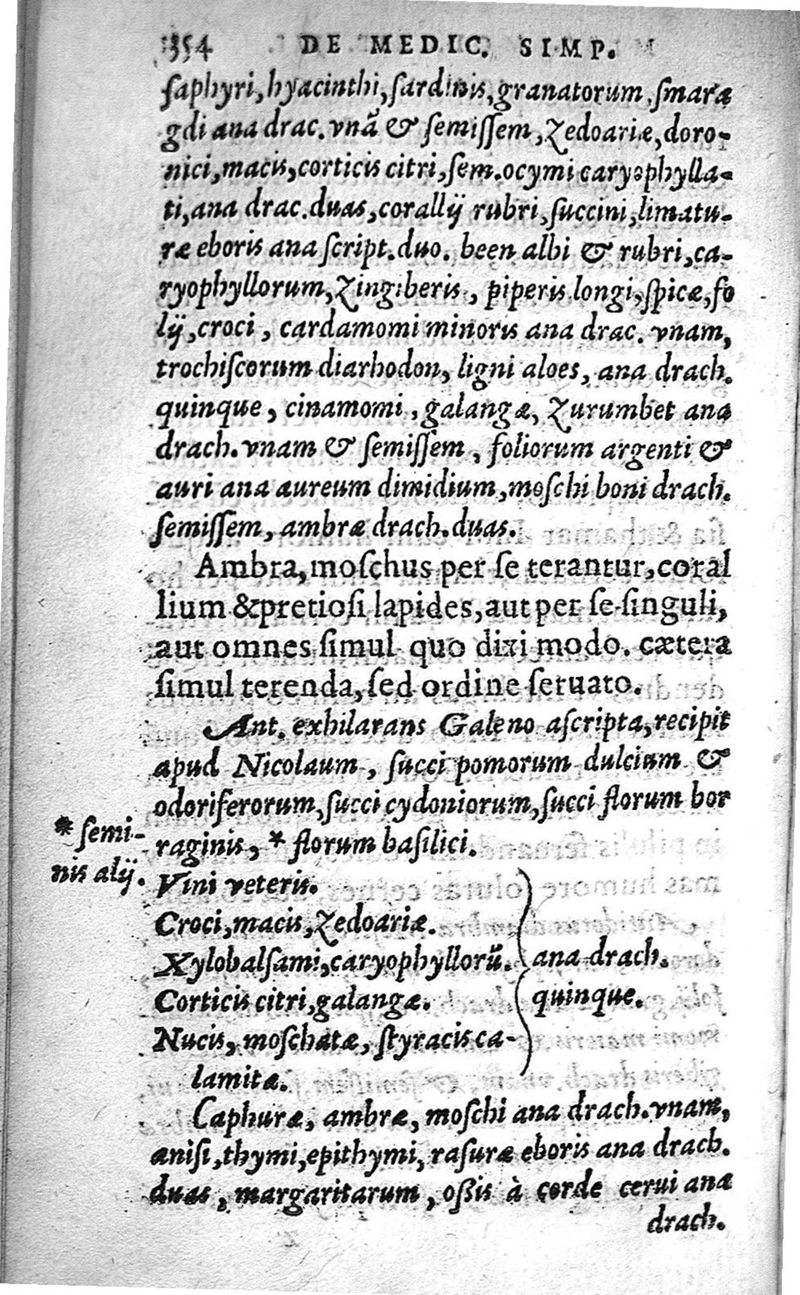 354 DE MEDIC. SIMP.
saphyri, hyacinthi, sardinis, granatorum, smara
gdi ana drac. vnã & semissem, Zedoariæ, doro-
nici, macis, corticis citri, sem. ocymi caryophylla-
ti, ana drac. duas, corallij rubri, succini, limatu-
ræ eboris ana script. duo. been albi & rubri, ca-
ryophyllorum, Zingiberis, piperis longi, spicæ, fo
lij, croci, cardamomi minoris ana drac. vnam,
trochiscorum diarhodon, ligni aloes, ana drach.
quinque, cinamomi, galangæ, Zurumbet ana
drach. vnam & semissem, foliorum argenti &
auri ana aureum dimidium, moschi boni drach.
semissem, ambræ drach. duas.
Ambra, moschus per se terantur, coral
lium & pretiosi lapides, aut per se singuli,
aut omnes simul quo dixi modo. cætera
simul terenda, sed ordine seruato.
Ant. exhilarans Galeno ascripta, recipit
apud Nicolaum, succi pomorum dulcium &
odoriferorum, succi cydoniorum, succi florum bor
raginis, * florum basilici.
* semi-
nis alij.
Vini veteris.
Croci, macis, Zedoariæ.
Xylobalsami, caryophyllorũ.
Corticis citri, galangæ.
Nucis, moschatæ, styracis ca-
lamitæ.
ana drach.
quinque.
Caphuræ, ambræ, moschi ana drach. vnam,
anisi, thymi, epithymi, rasuræ eboris ana drach.
duas, margaritarum, ossis à corde cerui ana
drach.